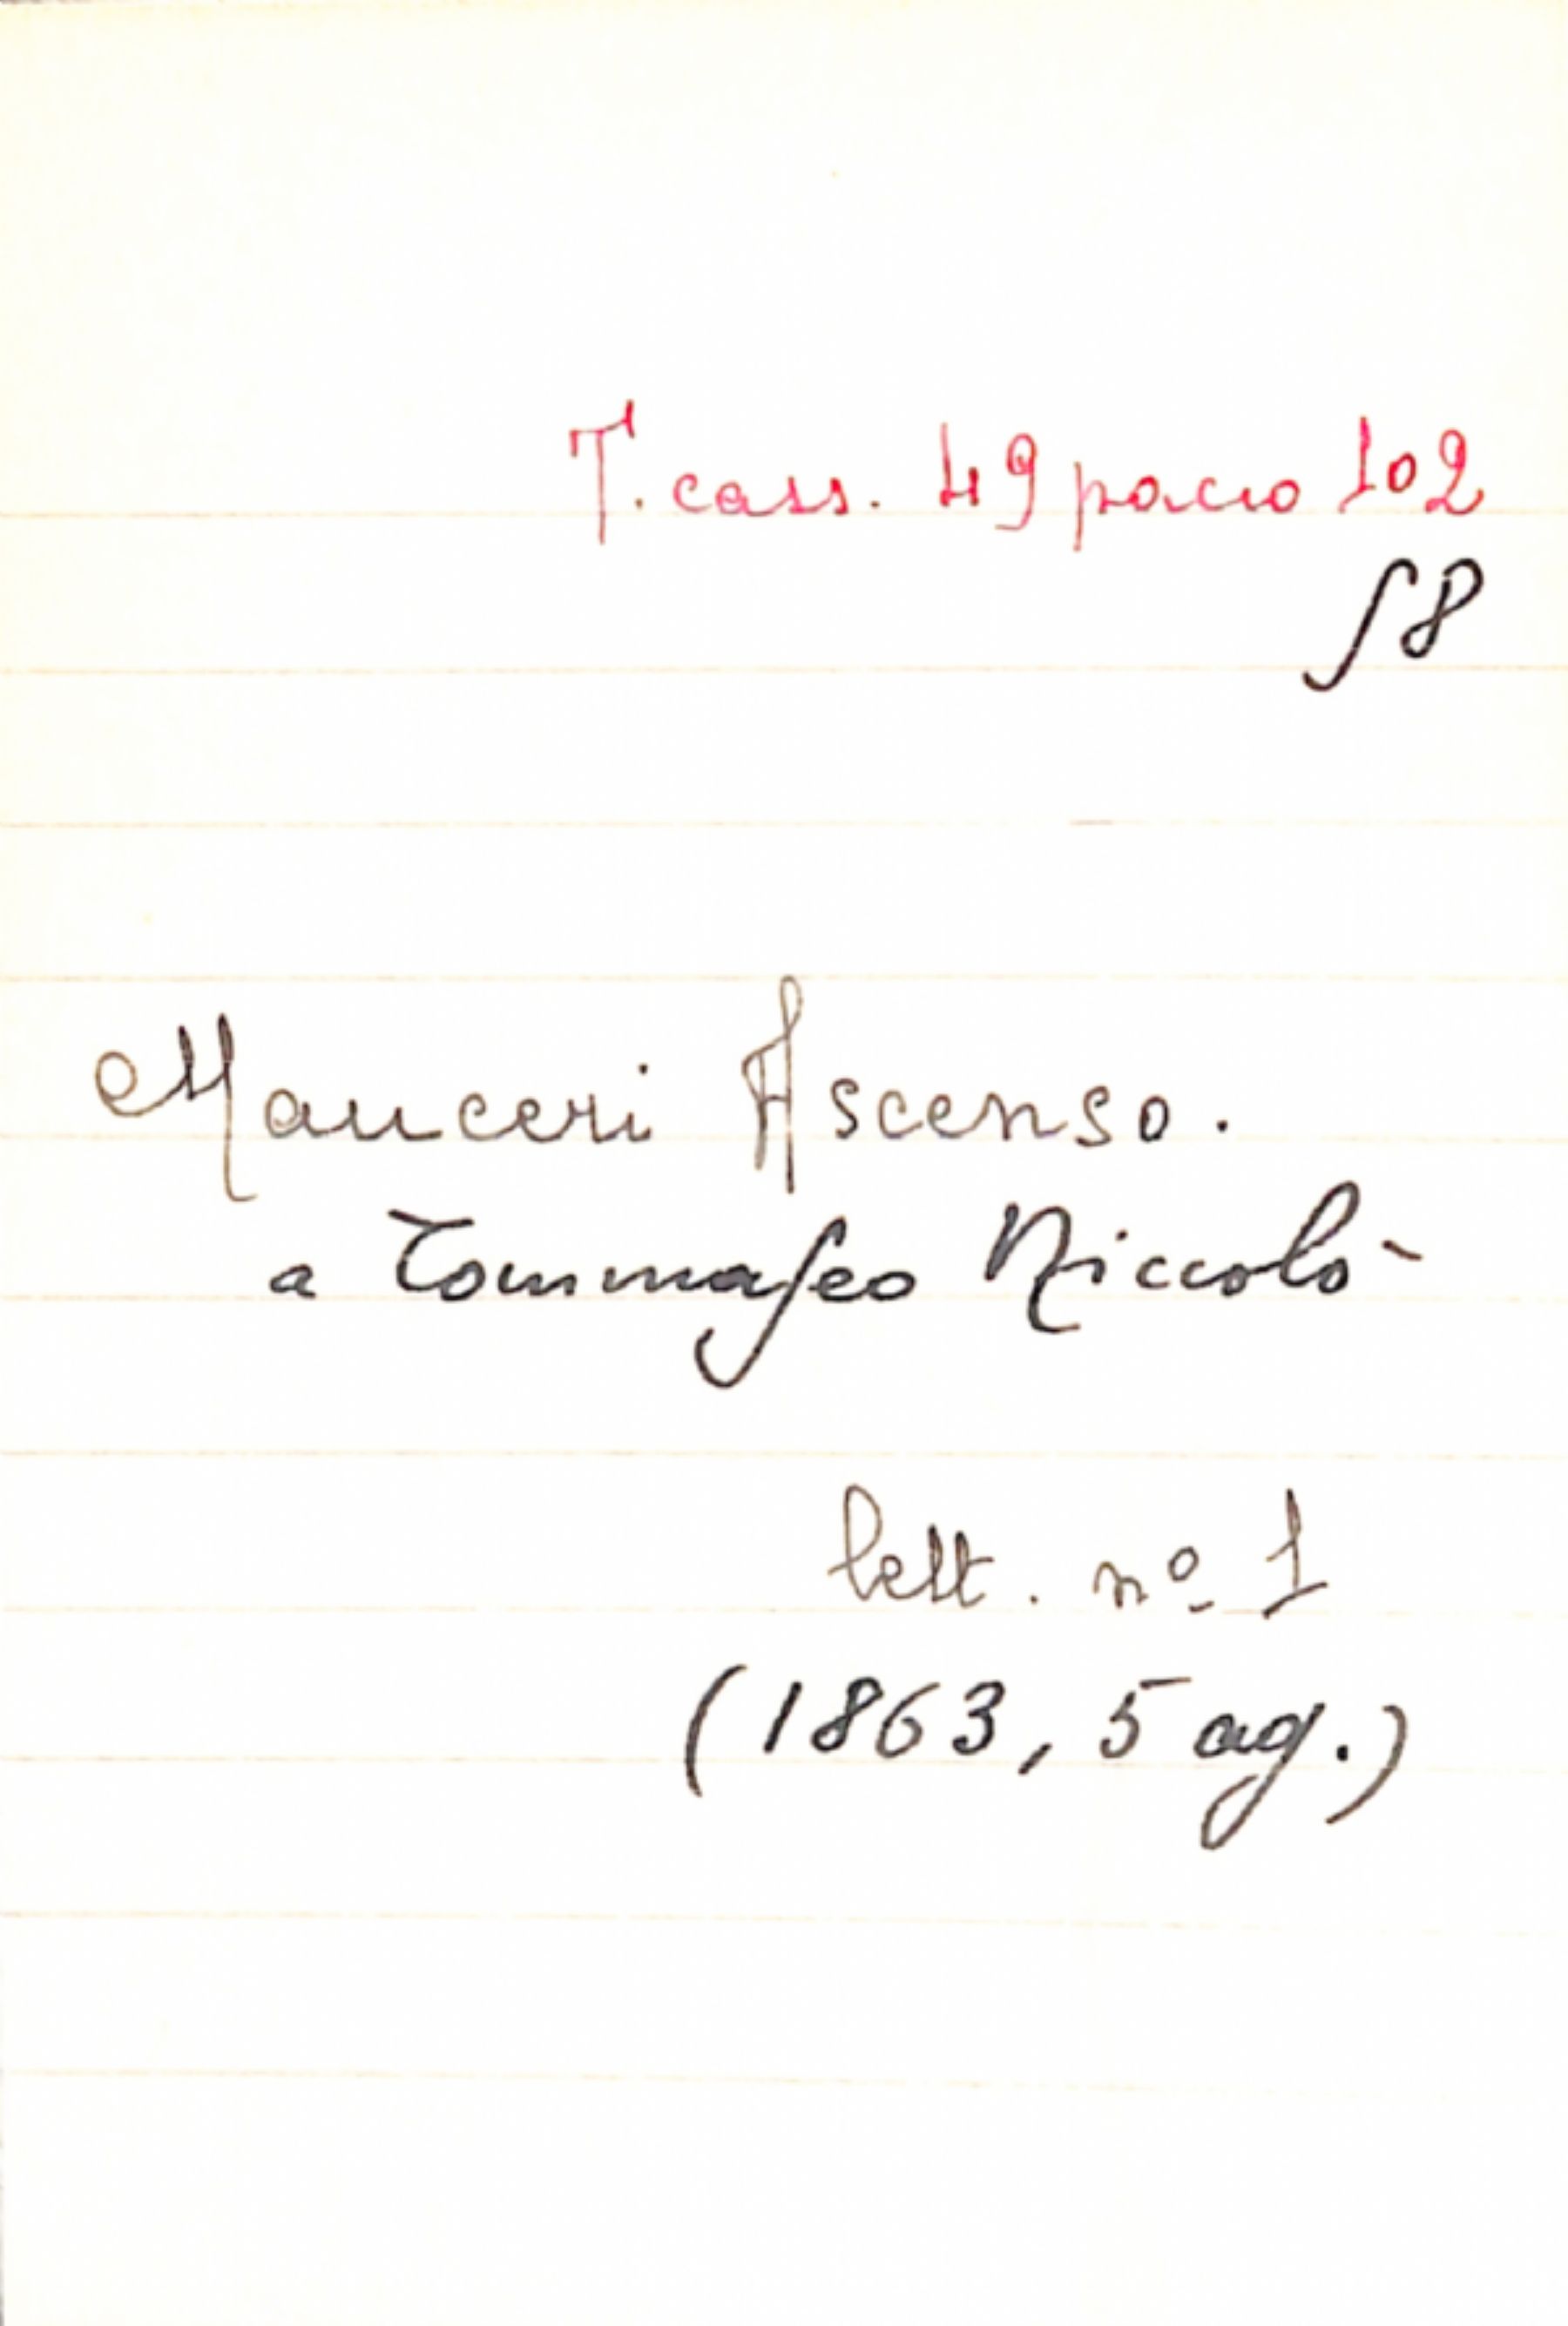 T. cass. 49 pacco 102
58
Mauceri Ascenso.
a Tommaseo Niccolò
lett. nº 1
(1863, 5 ag.)